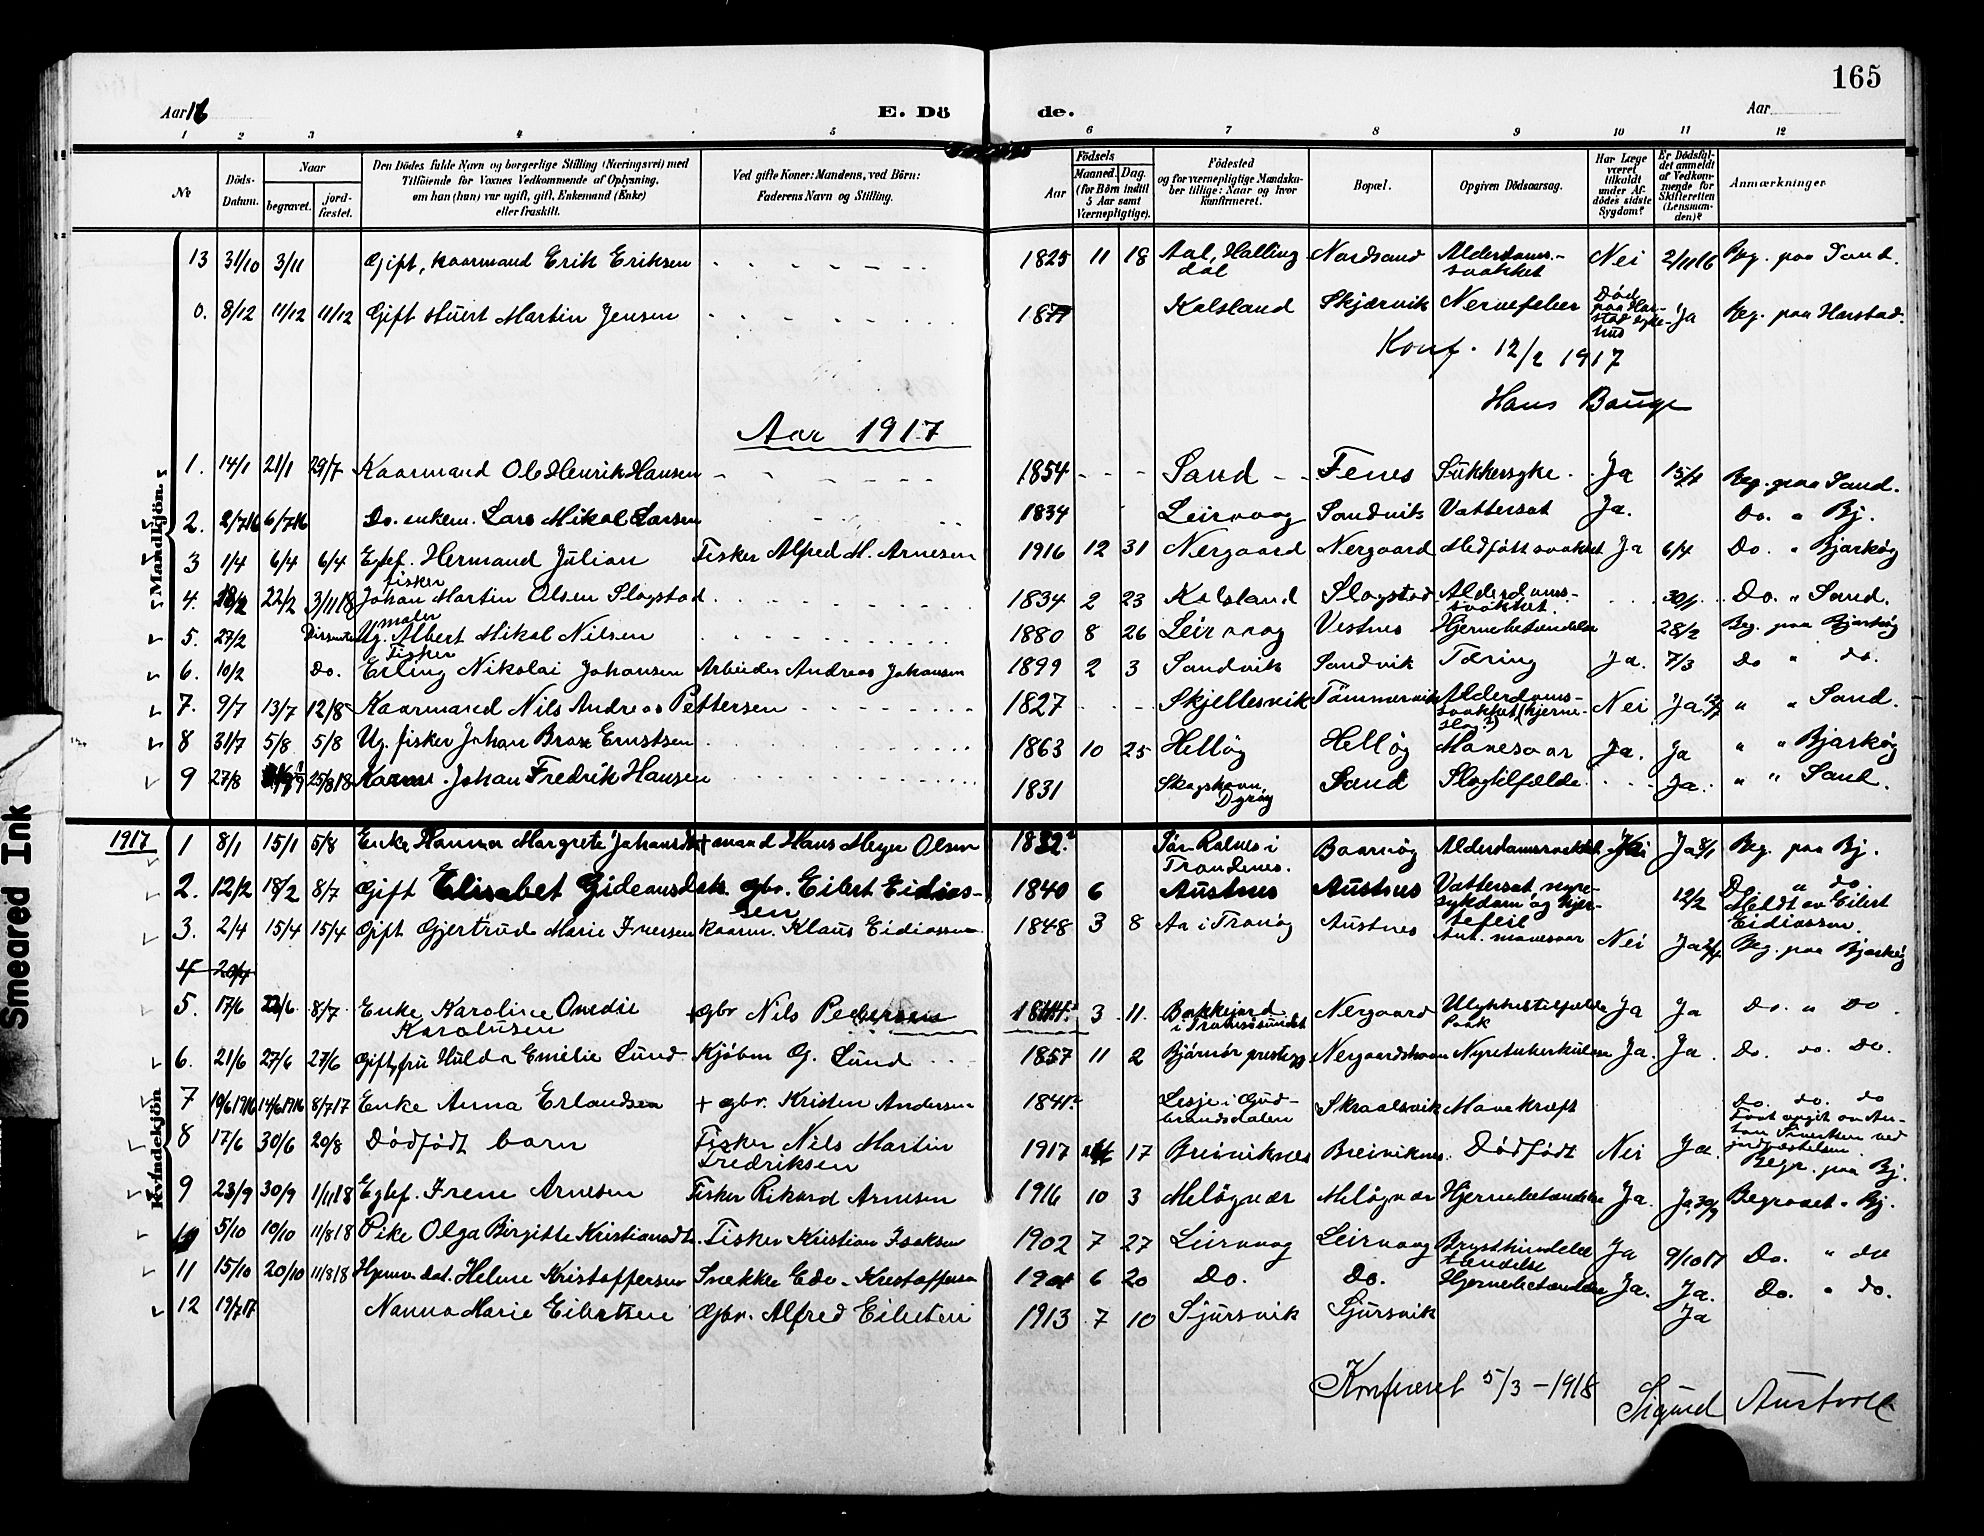 165
Aar 16
E. Dö de.
Aar
1 2 3 4 5 6 7 8 9 10 11 12
No
Döds-Datum.
Naar
begravet.
jord-fæstet.
Den Dödes fulde Navn og borgerlige Stilling (Næringsvei) med
Tilföiende for Voxnes Vedkommende af Oplysning,
om hun (han) var ugift, gift, Enkemand (Enke)
eller fraskilt.
Ved gifte Koner: Mandens, ved Börn:
Faderens Navn og Stilling.
Födsels
Aar
Maaned. Dag.
(for Börn indtil
5 Aar samt
Værnepligtige).
Födested
og for værnepligtige Mandska-
ber tillige: Naar og hvor
konfirmeret.
Bopæl.
Opgiven Dödsaarsag.
Har Læge
været
tilkaldt
under Af-
dödes sidste
Sygdom?
Er Dödsfal-
det anmeldt
af Vedkom-
mende for
Skifteretten
(Lensman-
den)?
Anmærkninger
13 31/10 3/11 Gift, kaarmand Erik Eriksen 1825 11 18 Aal, Halling
dal Nordsand Alderdoms-
svakhet Nei 2/11 16 Beg. paa Sand.
0. 8/12 11/12 11/12 Gift stuert Martin Jensen 1877 Kalsland Skjærvik Nervefeber Död
paa Har-
stad syke-
hus Ja Beg. paa Harstad.
Konf. 12/2 1917
Hans Bauge
Aar 1917
Mandkjön.
1. 14/1 21/1 29/7 Kaarmand Ole Henrik Hansen 1854 Sand Fenes Sukkersyke. Ja 15/1 Beg. paa Sand.
2. 2/716 6/716 Do. enkem. Lars Mikal Larsen 1834 Leirvaag Sandvik Vattersot Ja. Do. " Bj.
3 1/4 6/4 6/4 Egtef. Hermand Julian Fisker Alfred M. Arnesen 1916 12 31 Nergaard Nergaard Medfött svakhet Ja 6/4 Do. " Bjarköy
4. 18/2 22/2 3/11 18 fisker
Johan Martin Olsen Slagstad 1834 2 23 Kalsland Slagstad Alderdoms-
svakhet. 30/1 Do. " Sand.
5. 27/2 maler
Ug. Albert Mikal Nilsen 1880 8 26 Leirvaag Vestnes Hjernebetændelse 28/2 Beg. paa Bjarköy
6. 10/2 Do. Fisker
Erling Nikolai Johansen Arbeider Andreas Johansen 1899 2 3 Sandvik Sandvik Tæring Ja. 7/3 Do " do.
7. 9/7 13/7 12/8 Kaarmand Nils Andreas Pettersen 1827 Skjellesvik Tömmervik Alderdoms-
svakhet (hjerne-
slag?) Nei Ja. " " Sand.
8 31/7 5/8 5/8 Ug. fisker Johan Brox Ernstsen 1863 10 25 Hellög Hellög Mavesaar Ja. Ja " " Bjarköy
9 27/8 25/8 18 Kaarm. Johan Fredrik Hansen 1831 Skogshavn,
Dyröy Sand Slagtilfælde. Ja. " " Sand.
1917
Kvindekjön
1 8/1 15/1 5/8 Enke Hanna Margrete Johansdtr + maand Hans Meyer Olsen Sör Rolnes i
Trondenes. Baarnög Alderdomssvakhet Ja 8/1 Beg. paa Bj.
2. 12/2 18/2 8/7 Gift Elisabet Gideonsdatr. gbr. Eilert Eidias-
sen 1840 6 Austnes Austnes Vattersot, nyre-
sykdom og hjer-
tefeil 12/2 D " do
Meldt av Eilert
Eidiassen.
3. 2/4 15/4 15/4 Gift Gjertrud Marie Iversen kaarm. Klaus Eidiassen 1848 3 8 Aa i Tranöy Austnes Ant. mavesaar Nei Ja 2/4 Beg. paa Bjarköy
4 20/4
5. 17/6 23/6 8/7 Enke Karoline Ovedie
Karolusen + gbr Nils Pedersen 3 11. Bakkejord
i Tromsösundet Nergaard Ulykkestilfælde Ja Ja Do " Do
6. 21/6 27/6 27/6 Gift, fru Hulda Emelie Lund Kjöbm O. Lund 1857 11 2 Bjarnör presteg Nergaardshavn Nyretuberkulose Ja. Ja. Do. do. Do.
7 10/6 1916 14/6 1916 8/7 17 Enke Anna Erlandsen + gbr. Kristen Andersen 1841? Lesje i Gud-
brandsdalen Skraalsvik Mavekræft Do. do. do
8 17/6 30/6 20/8 Dödfödt barn Fisker Nils Martin
Fredriksen 1917 17 Breiviknes Breiviknes. Dödfödt Nei Ja. Begr. paa Bj.
9 23/9 30/9 1/11 18 Egtef. Irene Arnesen Fisker Rikard Arnesen 1916 10 3 Melögvær Melögvær Hjernebetændelse Ja. Ja 30/9 Begravet " Bj.
10 5/10 10/10 11/8 18 Pike Olga Birgitte Kristiansdtr. Fisker Kristian Isaksen 1902 7 27 Leirvaag Leirvaag Brysthindebe
tændelse Ja 9/10 17 Do. " do
11 15/10 20/10 11/8 18 Hjemv. dat. Helene Kristoffersen Snekker Edv. Kristoffersen 6 20 Do. Do. Hjernebetændelse Ja. Ja. Do. " do.
12 19/7 17 Nanna Marie Eilertsen Gbr. Alfred Eilertsen 1913 7 10 Sjursvik Sjursvik Ja
Konfereret 5/3 - 1918
Sigurd Austvoll
Smeared Ink